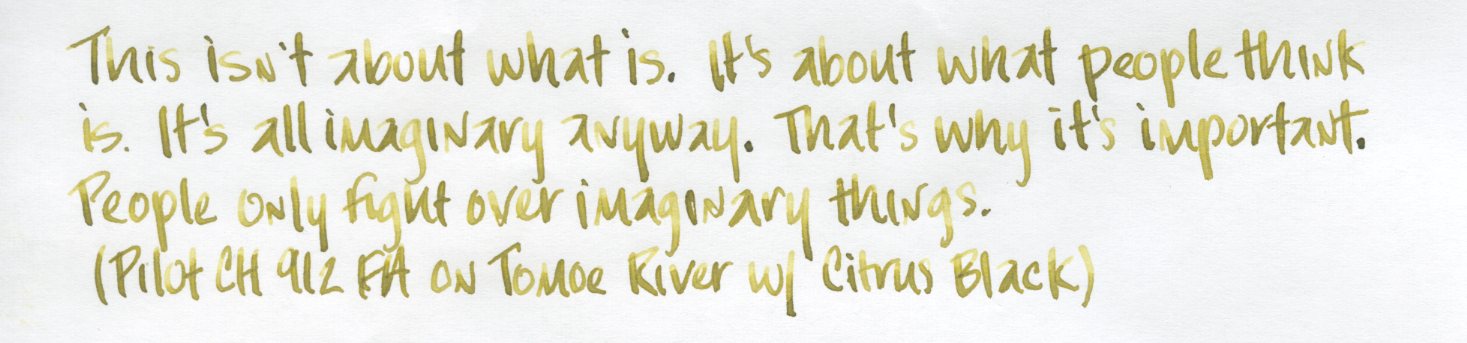 This isn't about what is. It's about what people think
is. It's all imaginary anyway. That's why it's important.
People only fight over imaginary things.
(Pilot CH 912 FA on Tomoe River w/ Citrus Black)